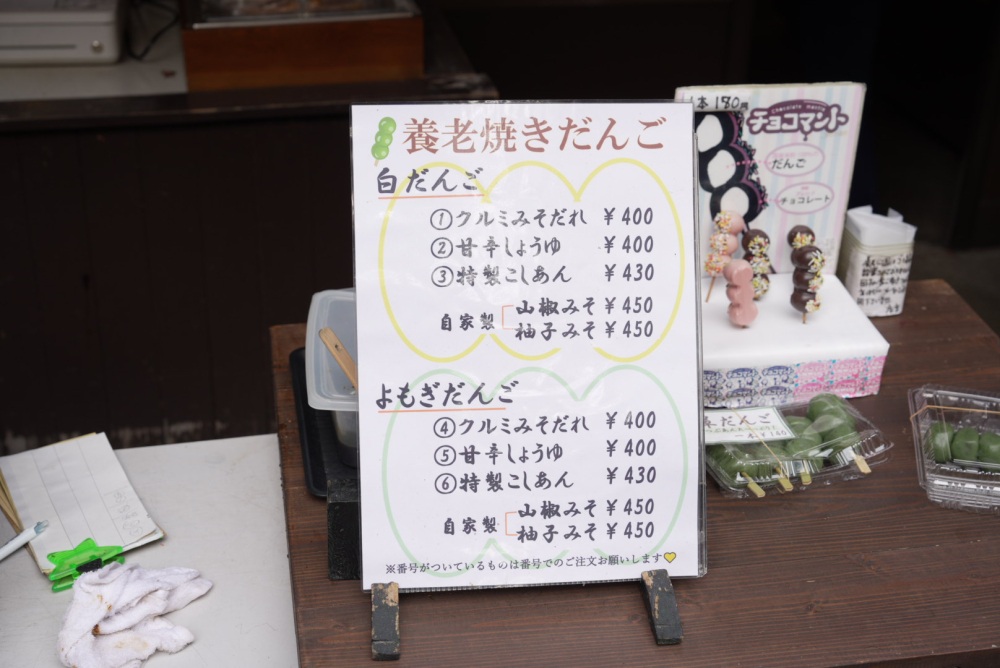 養老焼きだんご
白だんご
①クルミみそだれ ¥400
②甘辛しょうゆ ¥400
③特製こしあん ¥430
自家製
山椒みそ¥450
柚子みそ¥450
よもぎだんご
④クルミみそだれ ¥400
⑤甘辛しょうゆ ¥400
⑥特製こしあん ¥430
自家製
山椒みそ¥450
柚子みそ¥450
※番号がついているものは番号でのご注文お願いします
1本 180円
chocolate manto
チョコマント
だんご
チョコレート
だんご